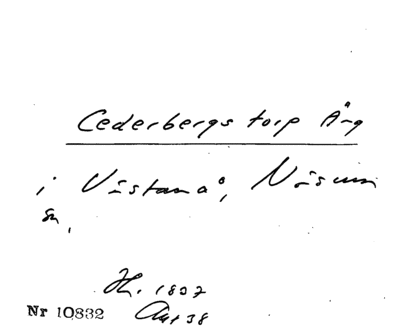 Cederbergs torp Äng
i Västanå, Näsum
sn,
Hl. 1837
Akt 38
Nr 10832